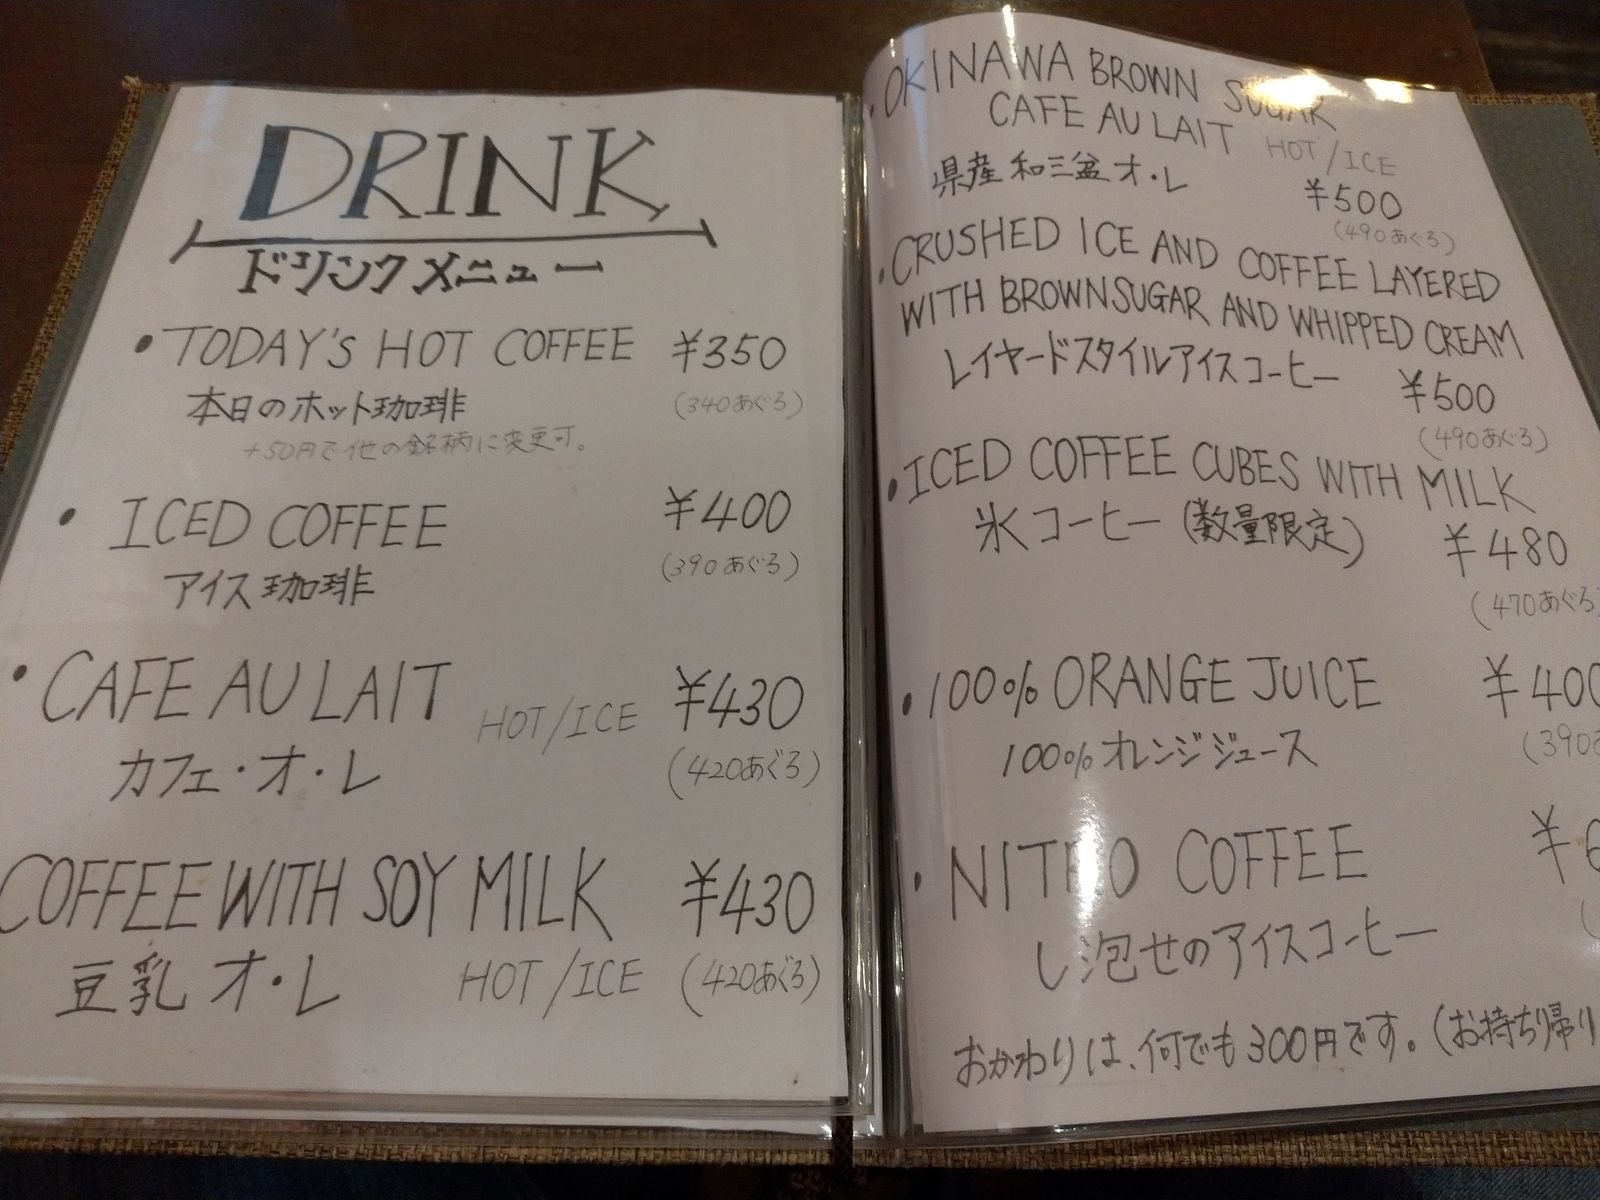 DRINK
ドリンクメニュー
• TODAY'S HOT COFFEE ¥350
本日のホット珈琲 (340あぐろ)
+50円で他の銘柄に変更可。
• ICED COFFEE ¥400
アイス珈琲 (390あぐろ)
• CAFE AU LAIT HOT/ICE ¥430
カフェ・オ・レ (420あぐろ)
COFFEE WITH SOY MILK ¥430
豆乳オ・レ HOT/ICE (420あぐろ)
• OKINAWA BROWN SUGAR
CAFE AU LAIT HOT/ICE
県産和三盆オ・レ ¥500
(490あぐろ)
• CRUSHED ICE AND COFFEE LAYERED
WITH BROWNSUGAR AND WHIPPED CREAM
レイヤードスタイルアイスコーヒー ¥500
(490あぐろ)
• ICED COFFEE CUBES WITH MILK
氷コーヒー(数量限定) ¥480
(470あぐろ
• 100% ORANGE JUICE ¥400
100%オレンジジュース (390あ
• NITRO COFFEE ¥6
し泡せのアイスコーヒー (
おかわりは、何でも300円です。(お持ち帰り